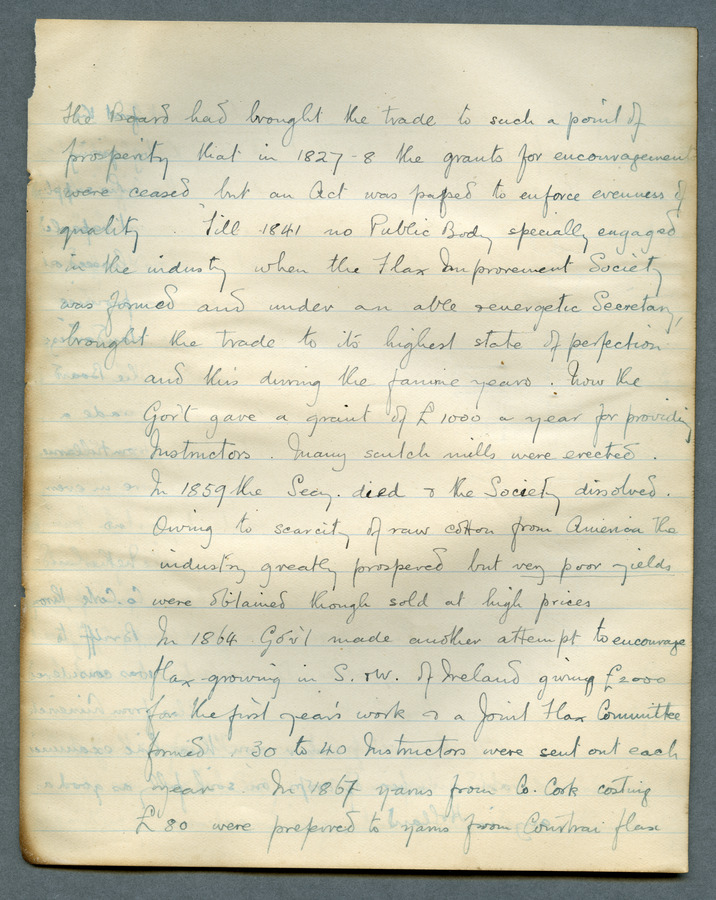 The Board had brought the trade to such a point of
prosperity that in 1827-8 the grants for encouragement
were ceased but an Act was passed to enforce evenness of
quality. Till 1841 no Public Body specially engaged
in the industy when the Flax Improvement Society
was formed and under an able & energetic Secretary,
brought the trade to its highest state of perfection
and this during the famine years. Now the
Gov't gave a grant of £1000 a year for providing
Instructors. Many scutch mills were erected.
In 1859 the Secy. died & the Society dissolved.
Owing to scarcity of raw cotton from America the
industry greatly prospered but very poor yields
were obtained though sold at high prices
In 1864 Gov't made another attempt to encourage
flax-growing in S. & W. of Ireland giving £2000
for the first year's work & a Joint Flax Committee
formed. 30 to 40 Instructors were sent out each
year. In 1867 yarns from Co. Cork costing
£80 were preferred to yarns from Courtrai flax